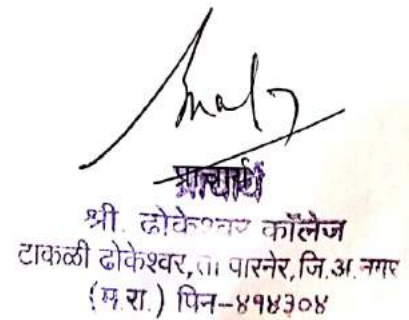 प्राचार्य
श्री. ढोकेश्वर कॉलेज
टाकळी ढोकेश्वर, ता. पारनेर, जि.अ.नगर
(म.रा.) पिन-४१४३०४